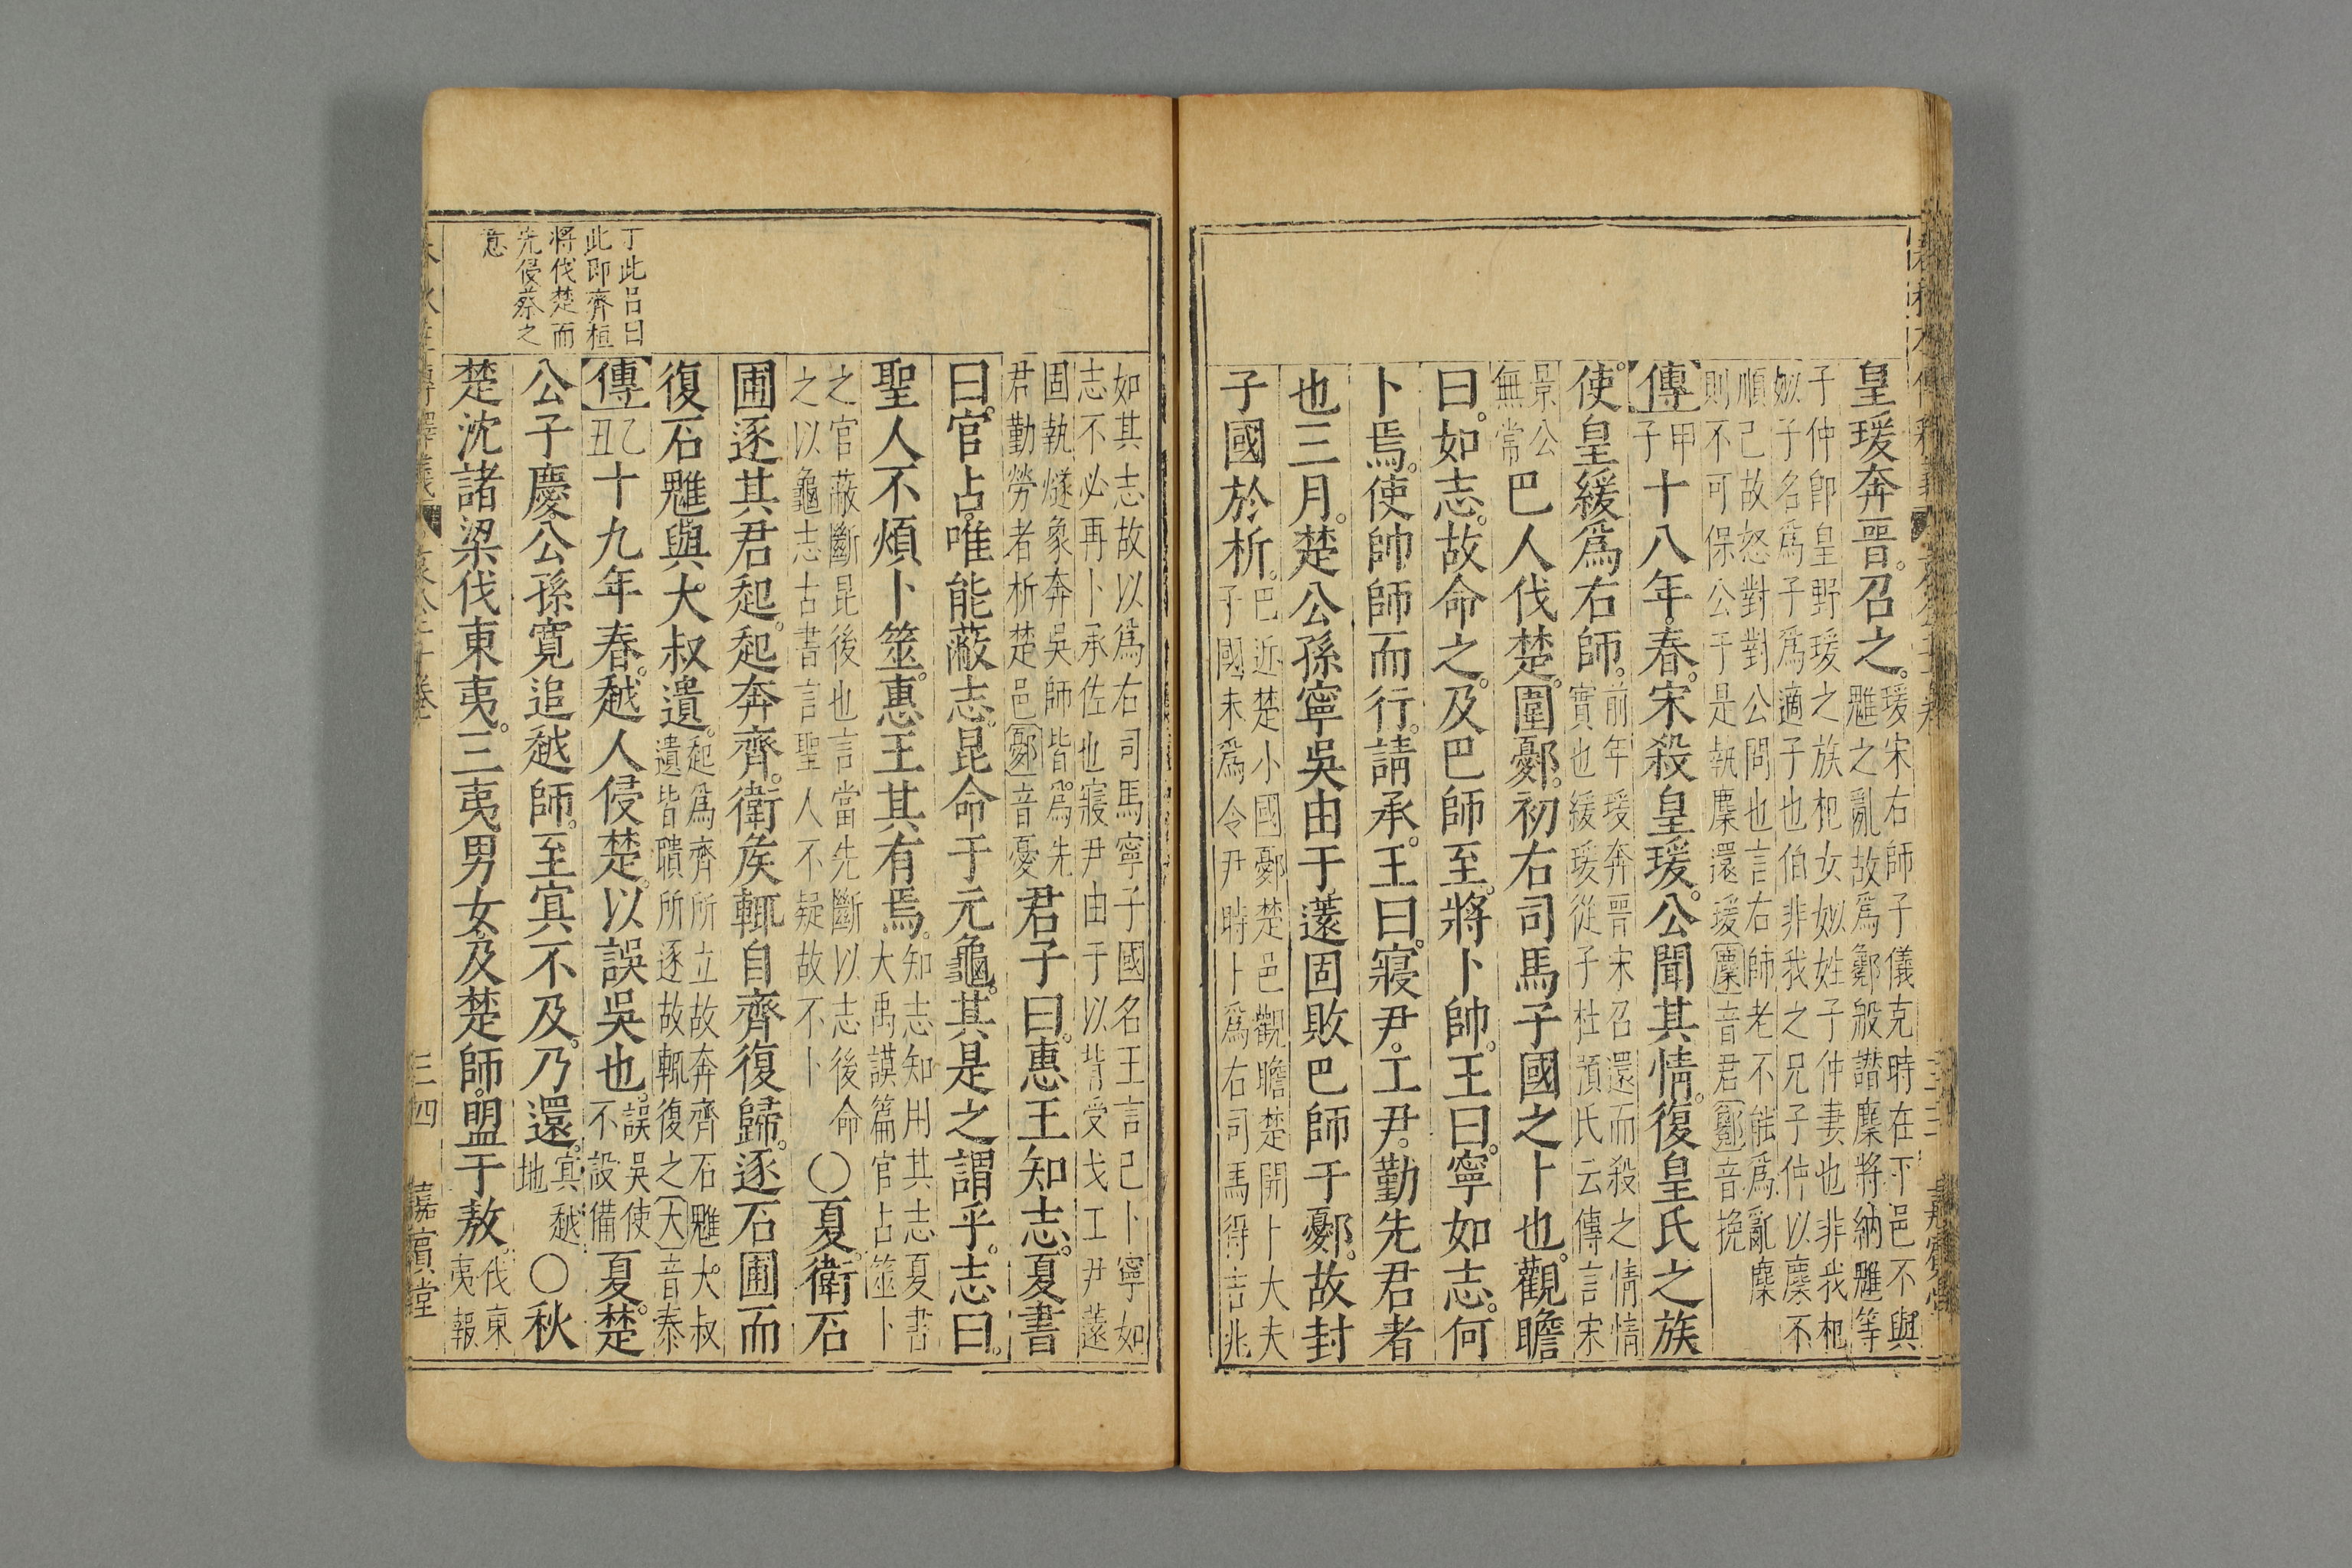 皇瑗奔晉。召之。瑗宋右師子儀克時在下邑不與魋之亂故爲酁般譖麇將納魋等
子仲卽皇野瑗之族杞女姒姓子仲妻也非我杞姒子名爲子爲適子也伯非我之兄子仲以麇不
順己故怒對對公問也言右師老不能爲亂麇則不可保公于是執麇還瑗麇音君酁音挽
傳甲子十八年。春。宋殺皇瑗。公聞其情。復皇氏之族
使。皇緩爲右師。前年瑗奔晉宋召還而殺之情情實也緩瑗從子杜預氏云傳言宋
景公無常巴人伐楚。圍鄾。初右司馬子國之卜也。觀瞻
曰。如志。故命之。及巴師至。將卜帥。王曰。寧如志。何
卜焉。使帥師而行。請承。王曰。寢尹。工尹。勤先君者
也三月。楚公孫寧吳由于薳固敗巴師于鄾。故封
子國於析。巴近楚小國鄾楚邑觀瞻楚開卜大夫子國未爲令尹時卜爲右司馬得吉兆
如其志故以爲右司馬寧子國名王言已卜寧如志不必再卜承佐也寢尹由于以背受戈工尹薳
固執燧象奔吳師皆爲先君勤勞者析楚邑鄾音憂君子曰。惠王知志。夏書
曰。官占。唯能蔽志。昆命于元龜。其是之謂乎。志曰。
聖人不煩卜筮。惠王其有焉。知志知用其志夏書大禹謨篇官占筮卜
之官蔽斷昆後也言當先斷以志後命之以龜志古書言聖人不疑故不卜〇夏。衛石
圃逐其君起。起奔齊。衛侯輒自齊復歸。逐石圃而
復石魋與大叔遺。起爲齊所立故奔齊石魋大叔遺皆聵所逐故輒復之大音泰
傳乙丑十九年春。越人侵楚。以誤吳也。誤吳使不設備夏。楚
公子慶。公孫寬追越師。至冥不及。乃還。冥越地〇秋
楚沈諸梁伐東夷。三夷男女及楚師。盟于敖伐東夷報
丁此呂曰
此即齊桓
將伐楚而
先侵蔡之
意
三四
嘉賓堂